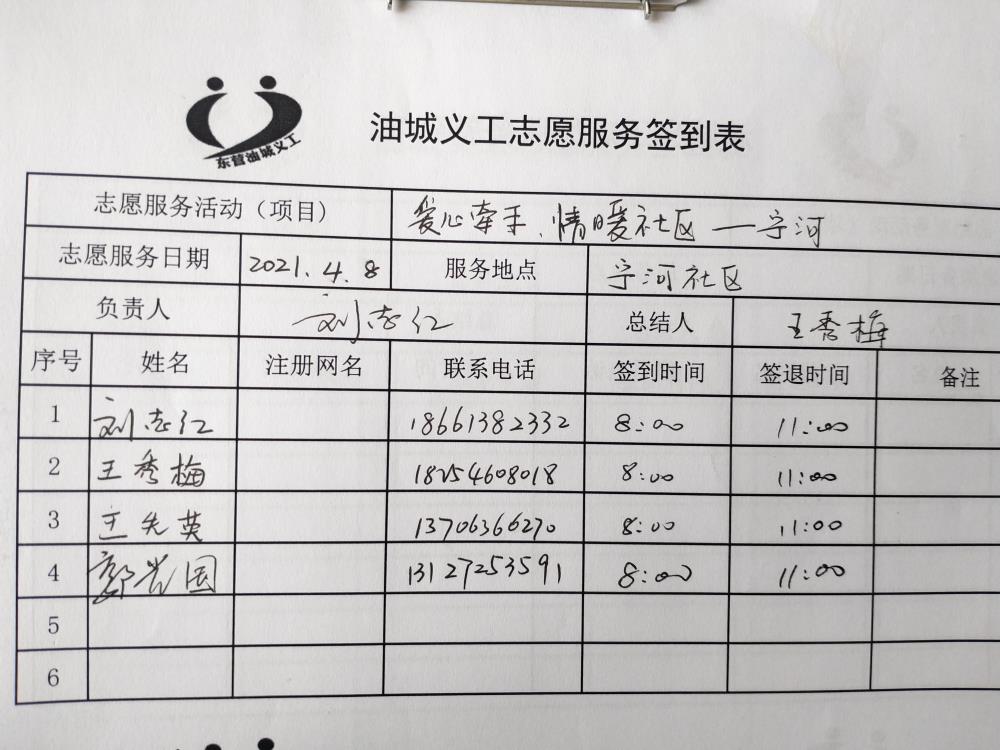 东营油城义工
油城义工志愿服务签到表
志愿服务活动（项目） 爱心牵手、情暖社区 — 宁河
志愿服务日期 2021.4.8 服务地点 宁河社区
负责人 刘志红 总结人 王秀梅
序号 姓名 注册网名 联系电话 签到时间 签退时间 备注
1 刘志红 18661382332 8:00 11:00
2 王秀梅 18254608018 8:00 11:00
3 王先英 13706366270 8:00 11:00
4 郭兴国 13127253591 8:00 11:00
5
6